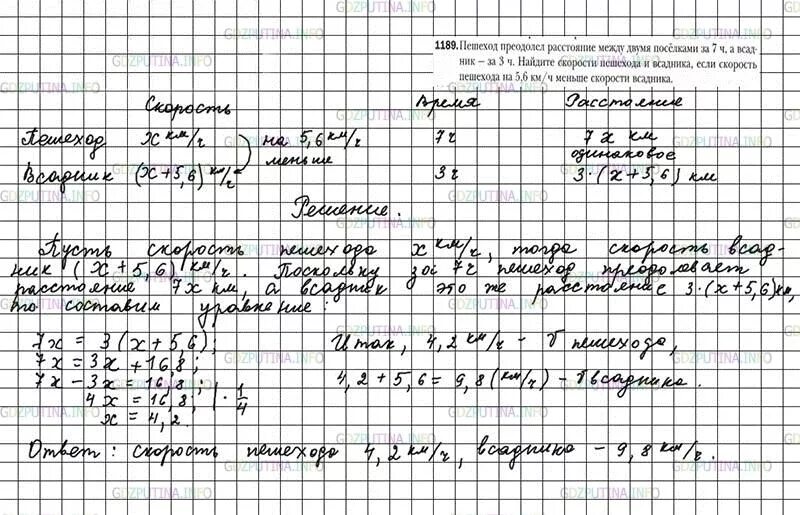 GDZPUTINA.INFO
1189. Пешеход преодолел расстояние между двумя посёлками за 7 ч, а всад-
ник – за 3 ч. Найдите скорости пешехода и всадника, если скорость
пешехода на 5,6 км/ч меньше скорости всадника.
Скорость Время Расстояние
Пешеход x км/ч на 5,6 км/ч 7ч 7x км
меньше одинаковое
Всадник (x+5,6) км/ч 3ч 3·(x+5,6) км
Решение.
Пусть скорость пешехода x км/ч, тогда скорость всад-
ник (x+5,6) км/ч. Поскольку за 7ч пешеход преодолевает
расстояние 7x км, а всадник это же расстояние 3·(x+5,6) км,
то составим уравнение:
7x = 3(x+5,6);
7x = 3x + 16,8;
7x - 3x = 16,8;
4x = 16,8; | · 1/4
x = 4,2.
Итак, 4,2 км/ч - V пешехода,
4,2 + 5,6 = 9,8 (км/ч) - V всадника.
Ответ: скорость пешехода 4,2 км/ч, всадника - 9,8 км/ч.